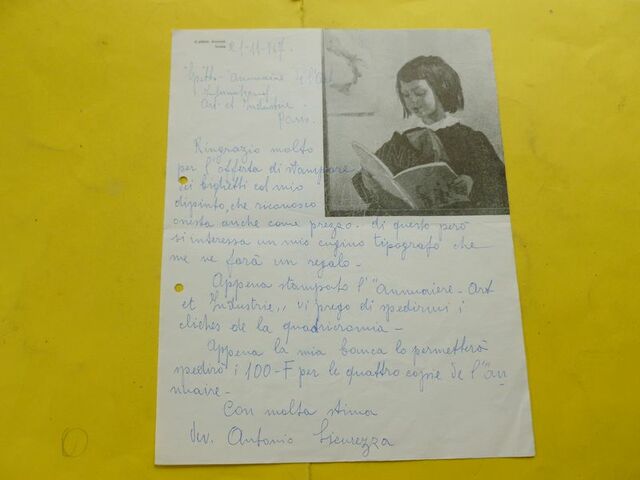 21-11-967.
Spett. "Annuaire de l'Art
International
Art et Industrie.
Paris.
Ringrazio molto
per l'offerta di stampare
dei biglietti col mio
dipinto, che riconosco
onesta anche come prezzo. di questo però
si interessa un mio cugino tipografo che
me ne farà un regalo-
Appena stampato l'"Annuaiere-Art
et Industrie,, vi prego di spedirmi i
clichès de la quadricromia-
Appena la mia banca lo permetterà
spedirò i 100-F per le quattro copie de l'"An-
nuaire-
Con molta stima
dev. Antonio Sicurezza